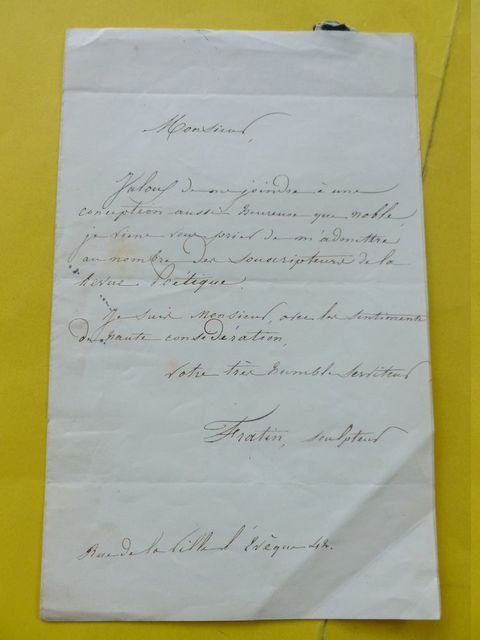 Monsieur,
Jaloux de me joindre à une
conception aussi heureuse que noble,
je viens vous prier de m'admettre
au nombre des souscripteurs de la
Revue Poëtique.
Je suis Monsieur, avec les sentiments
de haute considération,
votre très humble serviteur
Fratin, sculpteur
Rue de la Ville l'Evêque 42.